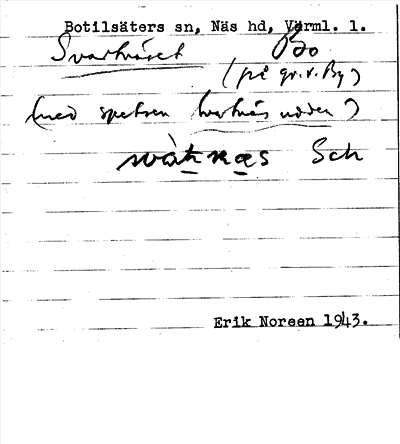 Botilsäters sn, Näs hd, Värml. l.
Svartnäset Bo
(på gr. v. By)
(med spetsen Svartnäsudden)
svàtnæs Sch
Erik Noreen 1943.